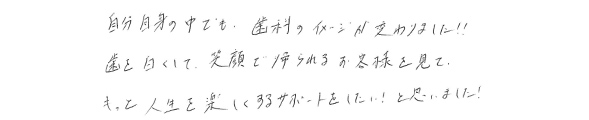 自分自身の中でも、歯科のイメージが変わりました!!
歯を白くして、笑顔で帰られるお客様を見て、
もっと人生を楽しくするサポートをしたい!と思いました!